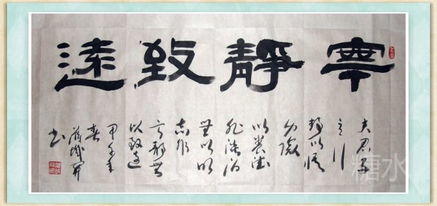 寧靜致遠
夫君子
之行
静以修
身儉
以養德
非澹泊
無以明
志非
寧静無
以致遠
甲午年
春
书
糖水